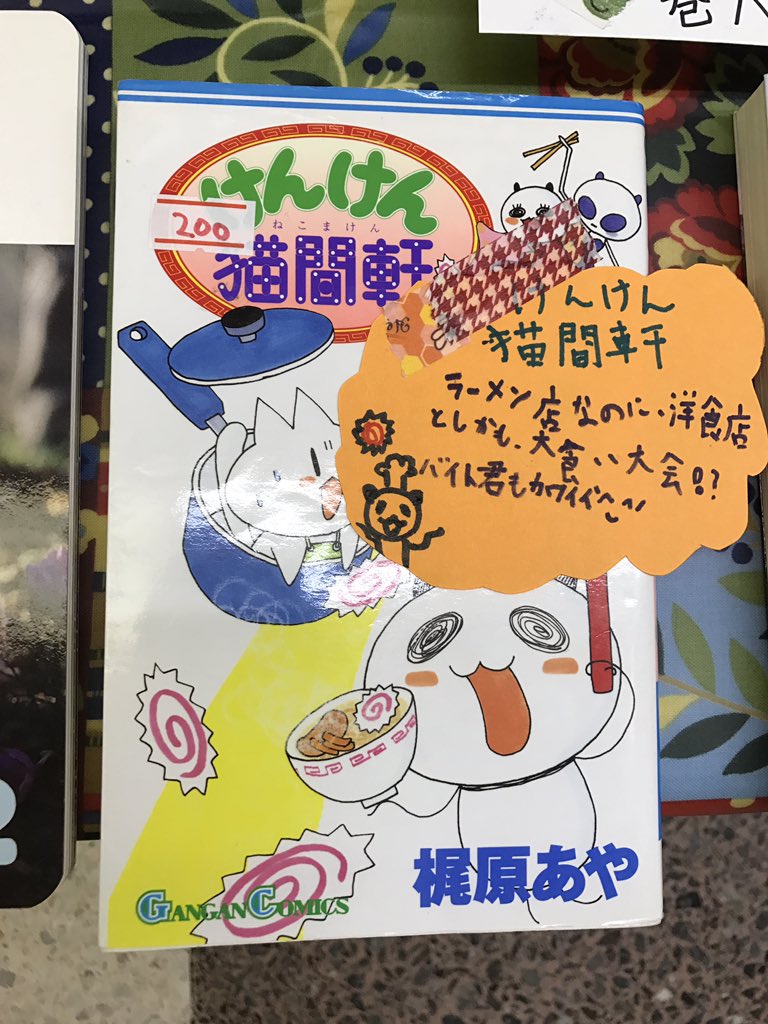 巻
けんけん
200
ねこまけん
猫間軒
けんけん
猫間軒
ラーメン店なのに、洋食店
としかも、大食い大会!?
バイト君もカワイイ
GANGAN COMICS
梶原あや